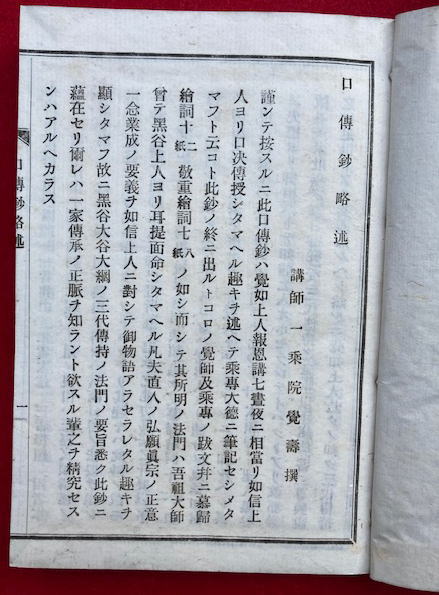 口傳鈔略述
講師一乘院覺壽撰
謹ンテ按スルニ此口傳鈔ハ覺如上人報恩講七晝夜ニ相當リ如信上
人ヨリ口决傳授シタマヘル趣キヲ述ヘテ乘專大德ニ筆記セシメタ
マフト云コト此鈔ノ終ニ出ルトコロノ覺師及乘專ノ跋文幷ニ慕歸
繪詞十二紙敬重繪詞七八紙ノ如シ而シテ其所明ノ法門ハ吾祖大師
曾テ黑谷上人ヨリ耳提面命シタマヘル凡夫直入ノ弘願眞宗ノ正意
一念業成ノ要義ヲ如信上人ニ對シテ御物語アラセラレタル趣キヲ
顯シタマフ故ニ黑谷大谷大綱ノ三代傳持ノ法門ノ要旨悉ク此鈔ニ
蘊在セリ爾レハ一家傳承ノ正脈ヲ知ラント欲スル輩之ヲ精究セス
ンハアルヘカラス
口傳鈔略述
一